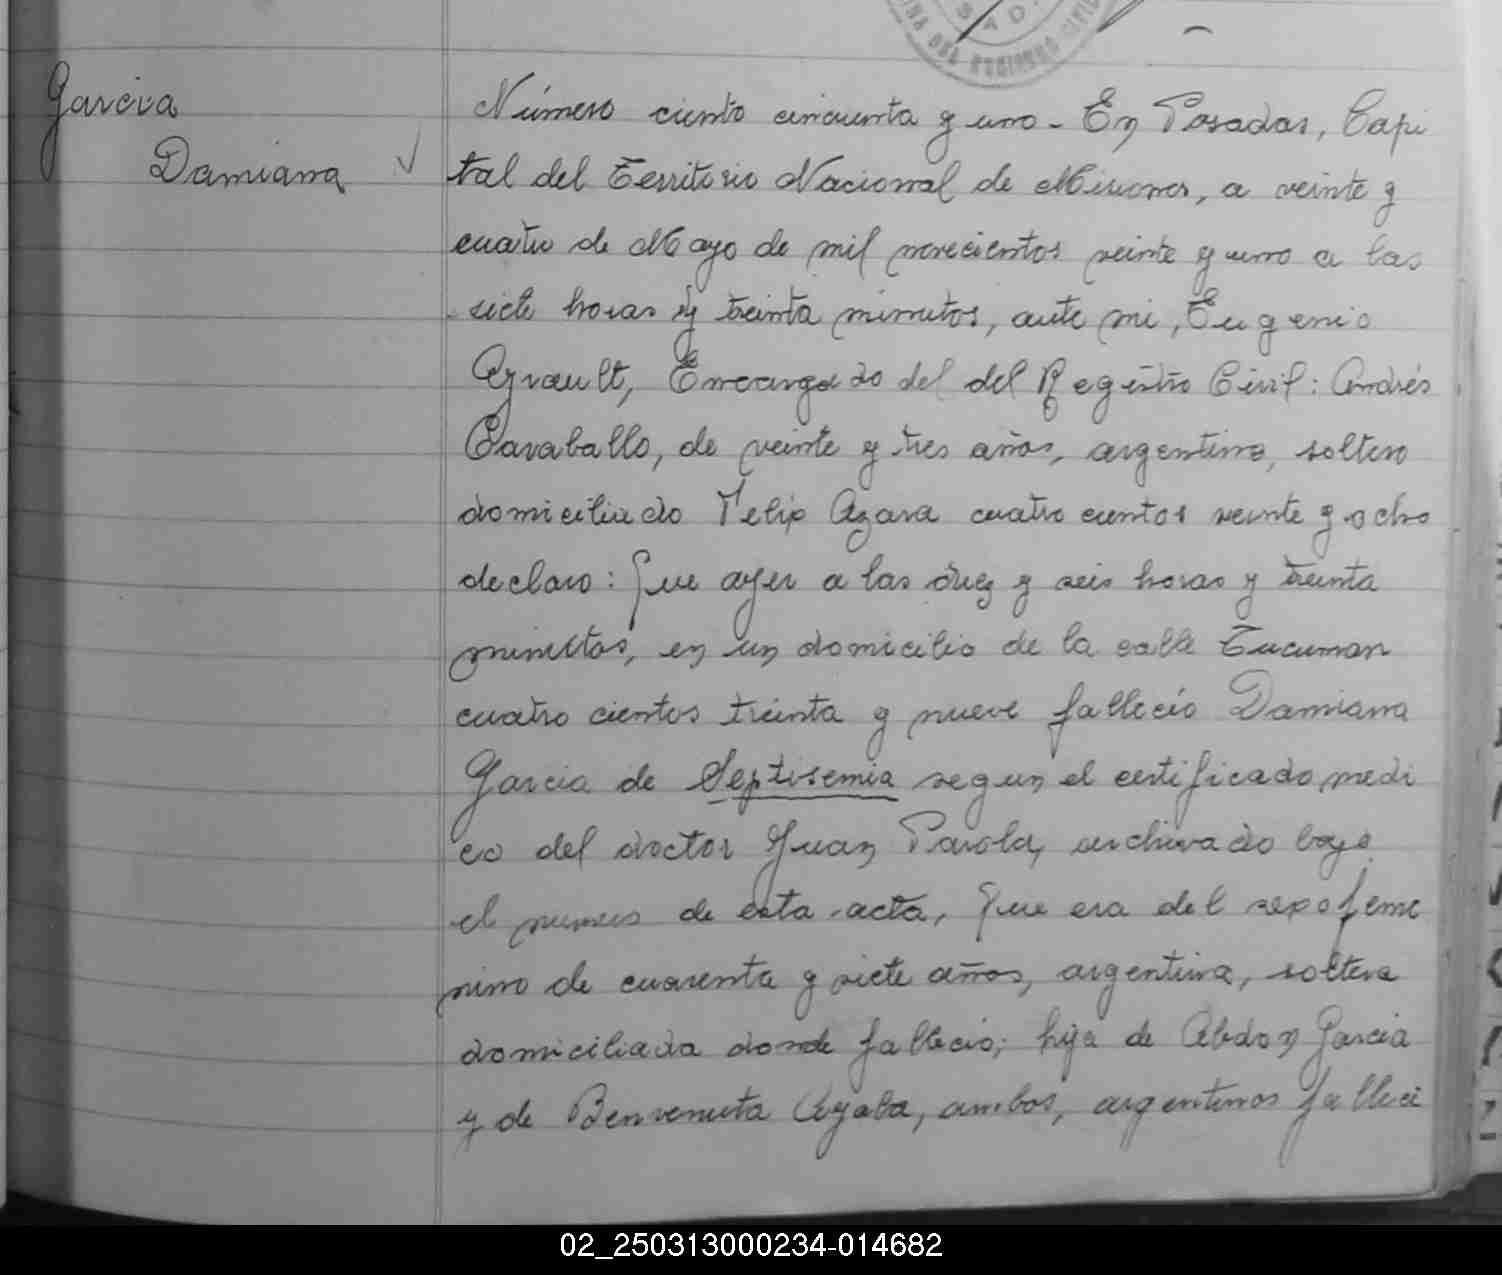 OFICINA DEL REGISTRO CIVIL
Garcia
Damiana
Número ciento cincuenta y uno - En Posadas, Capi
tal del Territorio Nacional de Misiones, a veinte y
cuatro de Mayo de mil novecientos veinte y uno a las
siete horas y treinta minutos, ante mi, Eugenio
Ayrault, Encargado del del Registro Civil: Andrés
Caraballo, de veinte y tres años, argentino, soltero
domiciliado Felix Azara cuatro cientos veinte y ocho
declaro: Que ayer a las diez y seis horas y treinta
minutos, en un domicilio de la calle Tucuman
cuatro cientos treinta y nueve fallecio Damiana
Garcia de Septisemia segun el certificado medi
co del doctor Juan Parola, archivado bajo
el numero de esta acta, Que era del sexo feme
nino de cuarenta y siete años, argentina, soltera
domiciliada donde fallecio; hija de Abdon Garcia
y de Benvenuta Ayala, ambos, argentinos falleci
02_250313000234-014682